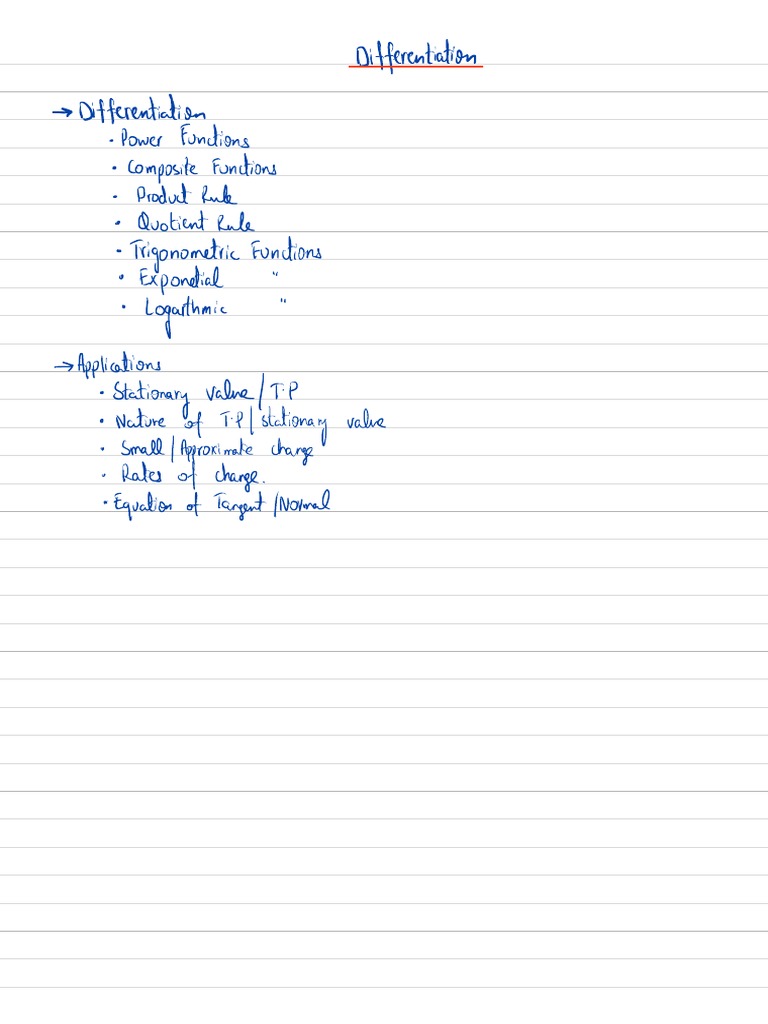 Differentiation
→ Differentiation
· Power Functions
· Composite Functions
· Product Rule
· Quotient Rule
· Trigonometric Functions
· Exponetial "
· Logarthmic "
→ Applications
· Stationary value/T.P
· Nature of T.P/stationary value
· Small/Approximate change
· Rates of change.
· Equation of Tangent/Normal